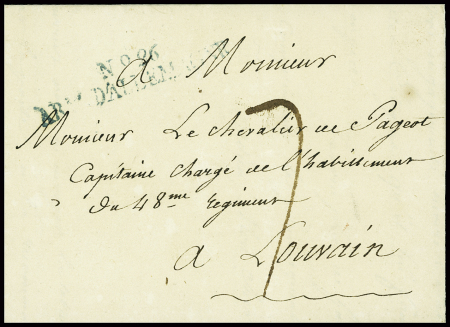 N° 26
ARM. D'ALLEMAGNE
A Monieur
Monieur Le chevalier de Pageot
Capitaine chargé de l'habillement
du 48me regiment
a Louvain
7